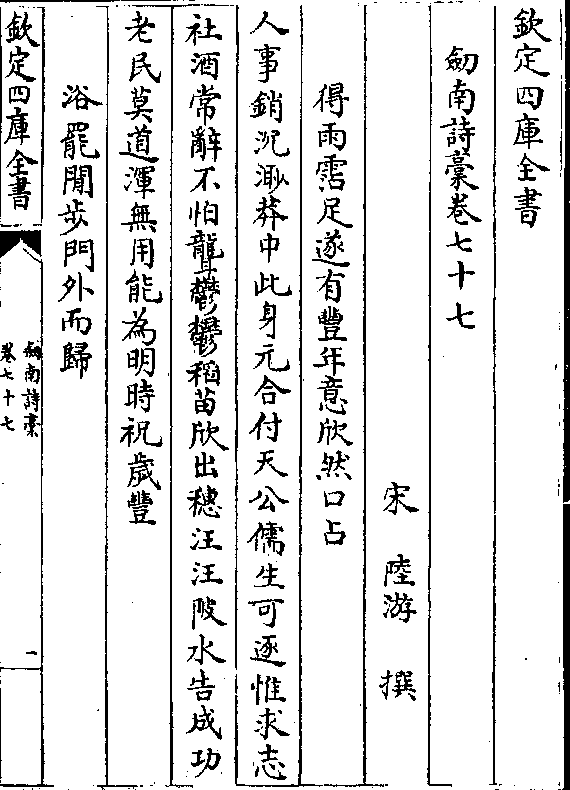 欽定四庫全書
劒南詩稾卷七十七
宋　陸游　撰
得雨霑足遂有豐年意欣然口占
人事銷沉渺莽中此身元合付天公儒生可逐惟求志
社酒常辭不怕聾鬱鬱稻苗欣出穗汪汪陂水告成功
老民莫道渾無用能為明時祝歲豐
浴罷閒步門外而歸
欽定四庫全書
劒南詩稾
卷七十七
一